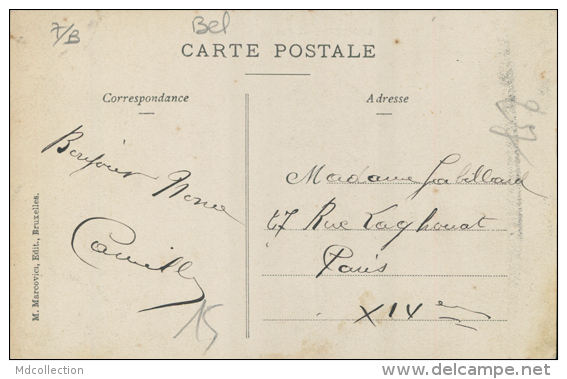 7/B
Bel
CARTE POSTALE
Correspondance
Adresse
Bonjour Nona
Camille
15
M. Marcovici, Edit., Bruxelles.
Madame
Rue Laghouat
Paris
XIVem
Mdcollection
www.delcampe.net